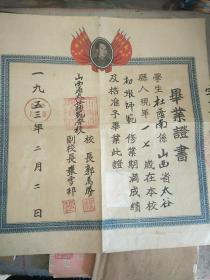 畢業證書
學生杜蔭南係山西省太谷
縣人現年一七歲在本校
初級師範修業期滿成績
及格准予畢業此證
山西省太谷師範學校
校長郭萬勝
副校長
一九五三年二月二日